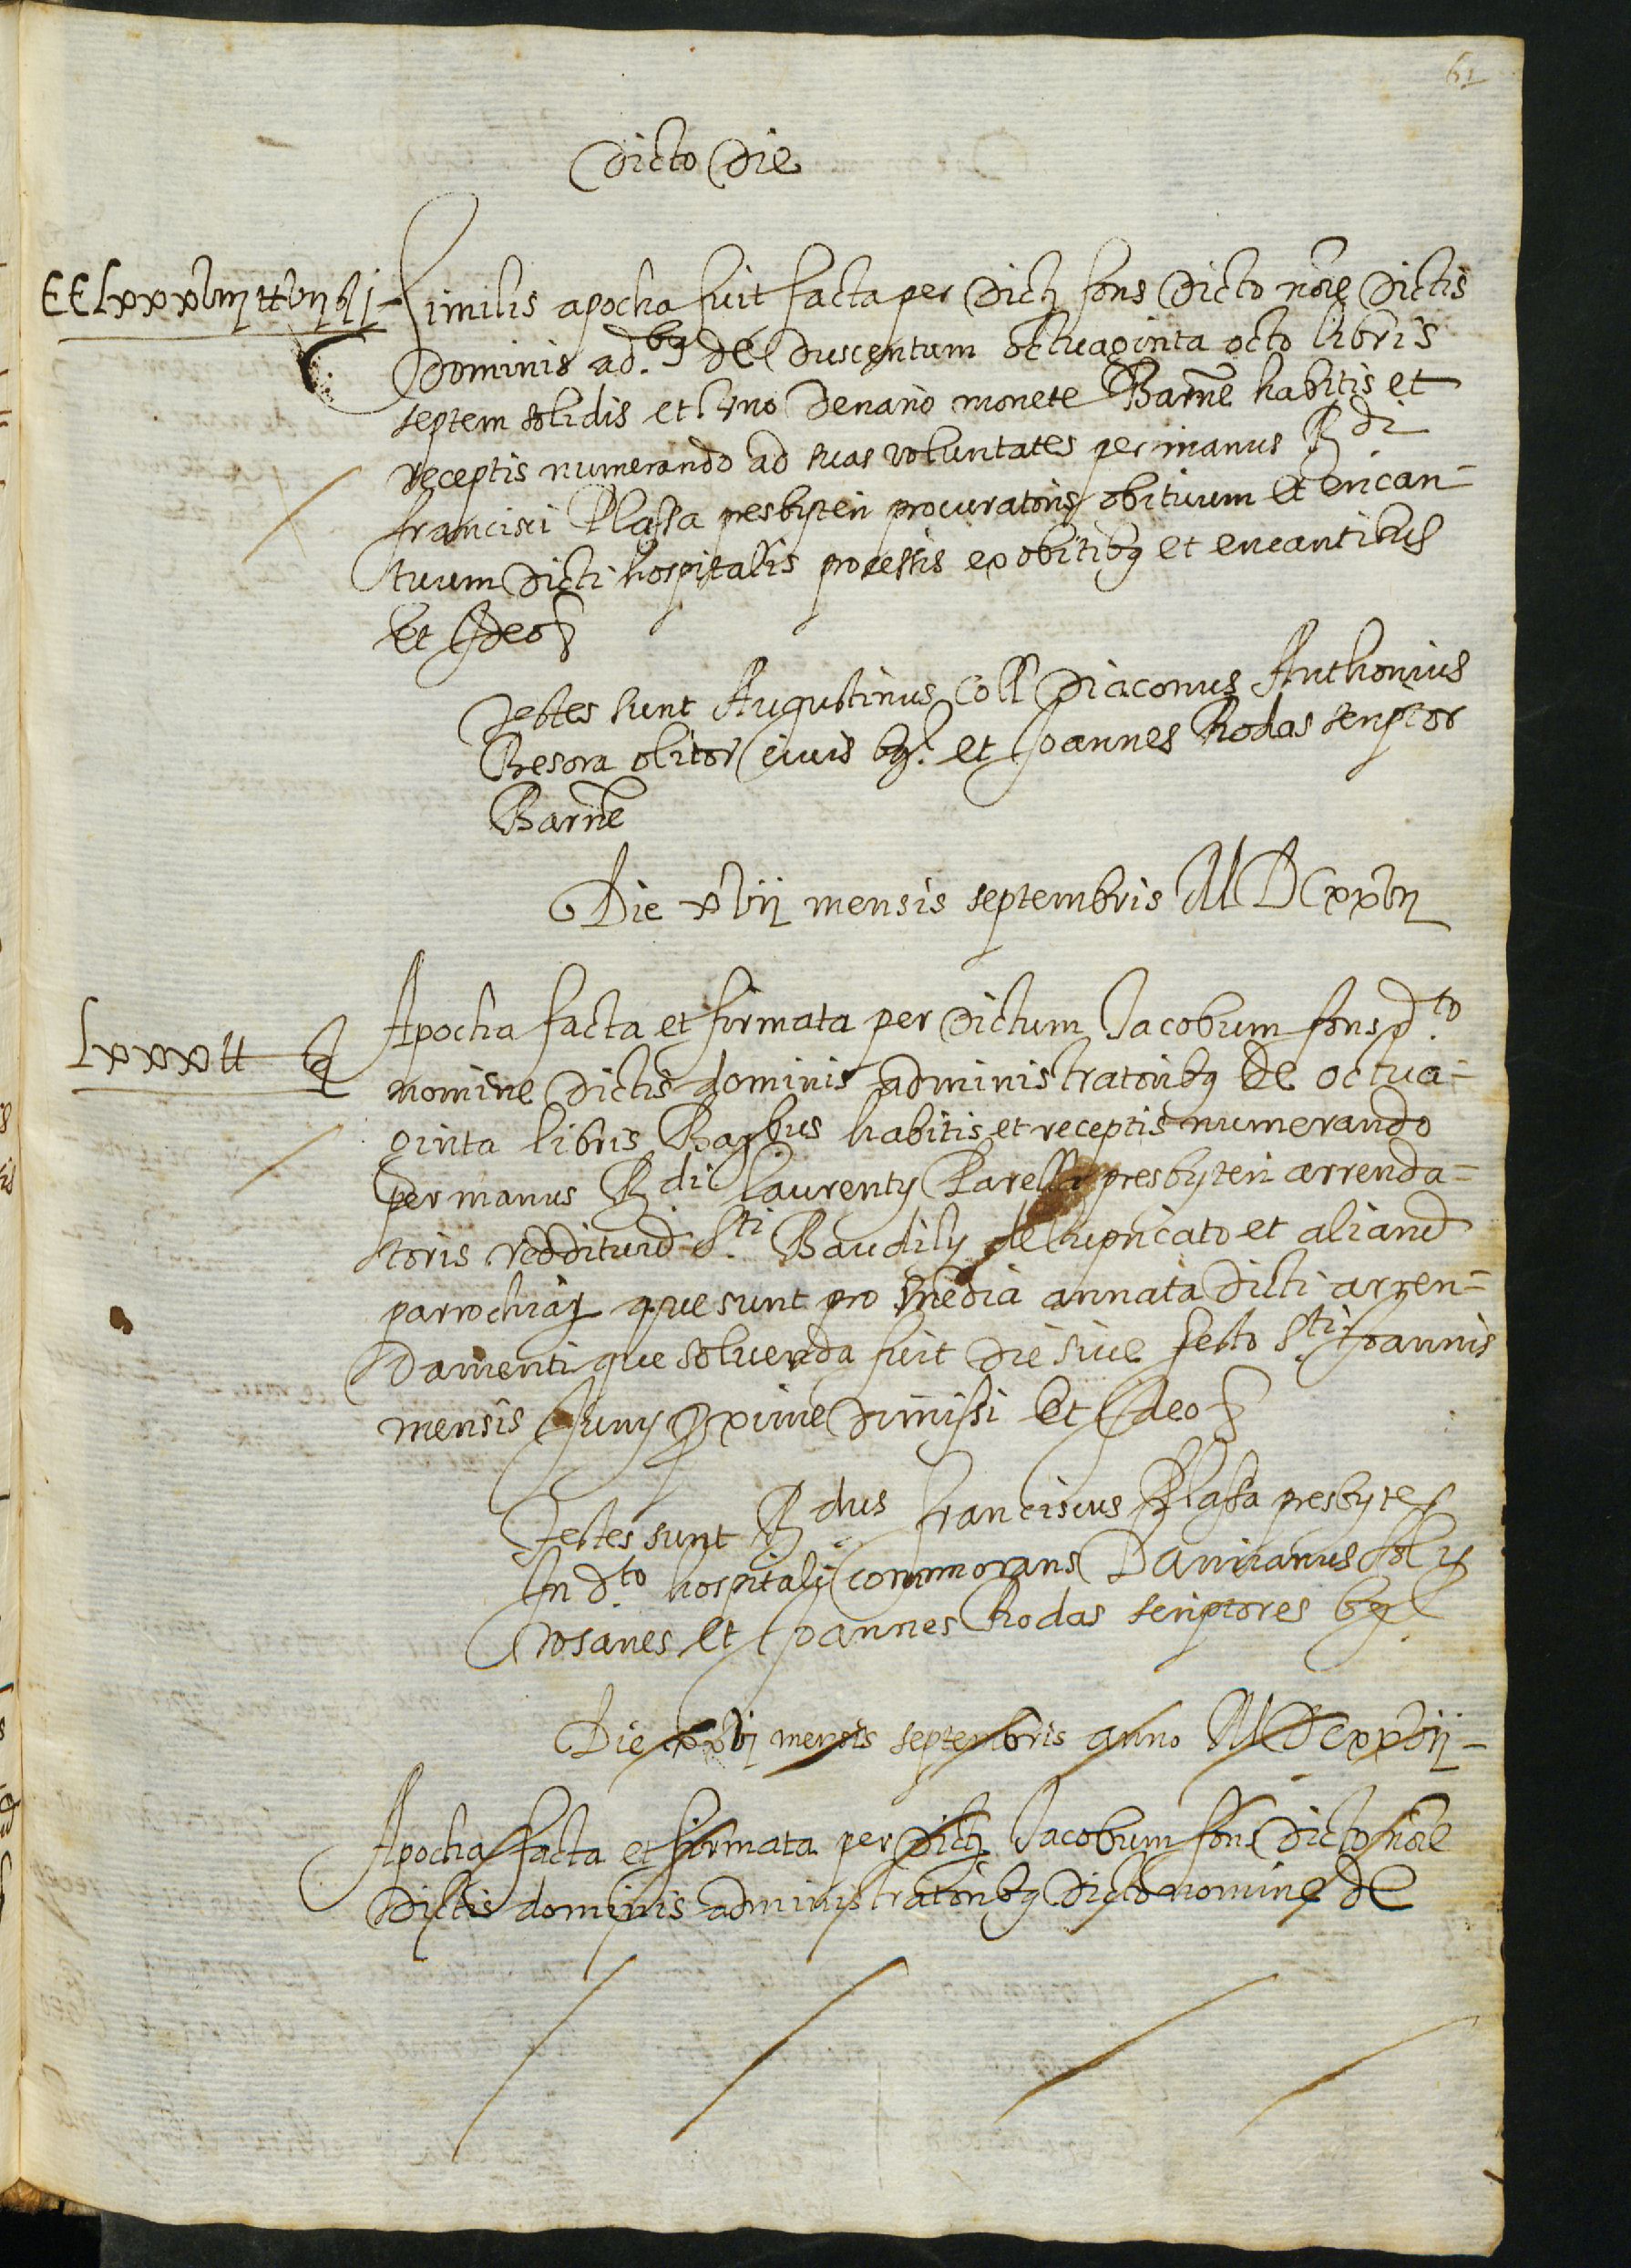 61
Dicto Die
CCLxxxviij ℔ vij ß j
Similis apocha fuit facta per dictũ fons Dicto nõie Dictis
Dominis ad.bꝰ de Duscentum octuaginta octo libris
septem solidis et Vno Denario monete Barne habitis et
receptis numerando ad suas voluntates per manus R.di
francisci Plassa presbyteri procuratoris obituum et encan=
tuum Dicti hospitalis processis ex obitibꝰ et encantibus
Et Ideo &
Testes sunt Augustinus Coll Diaconus Anthonius
Besora olitor civis bꝰ. et Joannes Rodas scriptor
Barne
Die xvij mensis septembris MDCxxvij
Lxxx ℔ ß
Apocha facta et firmata per Dictum Jacobum fons d.to
nomine Dictis dominis administratoribꝰ de octua=
ginta libris Barbus habitis et receptis numerando
per manus R.di Laurentij Parella presbyteri arrenda=
toris reddituũ S.ti Baudilij de lupricato et aliarũ
parrochiaꝝ que sunt pro media annata Dicti arren=
Damenti que solvenda fuit die sive festo S.ti Joannis
mensis Junij ꝓxime Dimissi Et Ideo &
Testes sunt R.dus Franciscus Plassa presbyter
In d.to hospitali commorans Damianus
rosanes et Joannes Rodas scriptores bꝰ
Die xxvj mensis septembris anno MDCxxvij -
Apocha facta et firmata per Dictũ Jacobum fons Dicto nõie
Dictis dominis administratoribꝰ Dicto nomine de